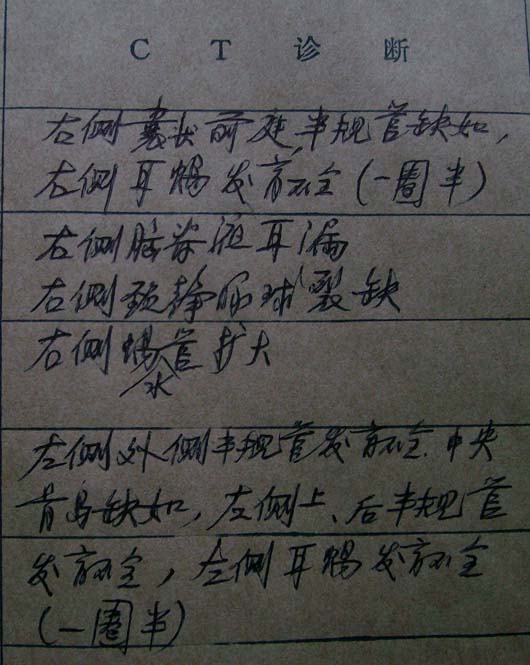 CT诊断
右侧囊状前庭,半规管缺如,
右侧耳蜗发育不全(一圈半)
右侧脑脊液耳漏
右侧颈静脉球裂缺
右侧蜗水管扩大
左侧外侧半规管发育不全.中央
骨岛缺如,左侧上、后半规管
发育不全,左侧耳蜗发育不全
(一圈半)